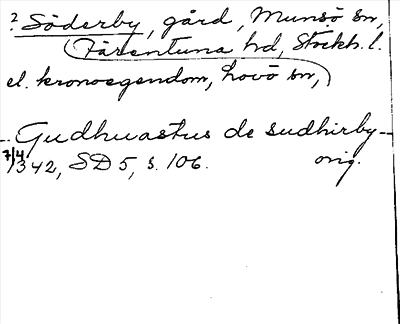 ? Söderby, gård, Munsö sn,
(Färentuna hd, Stockh. l.
el. kronoegendom, Lovö sn,)
-- Gudhuastus de sudhirby --
7/4 1342, SD 5, s. 106. orig.